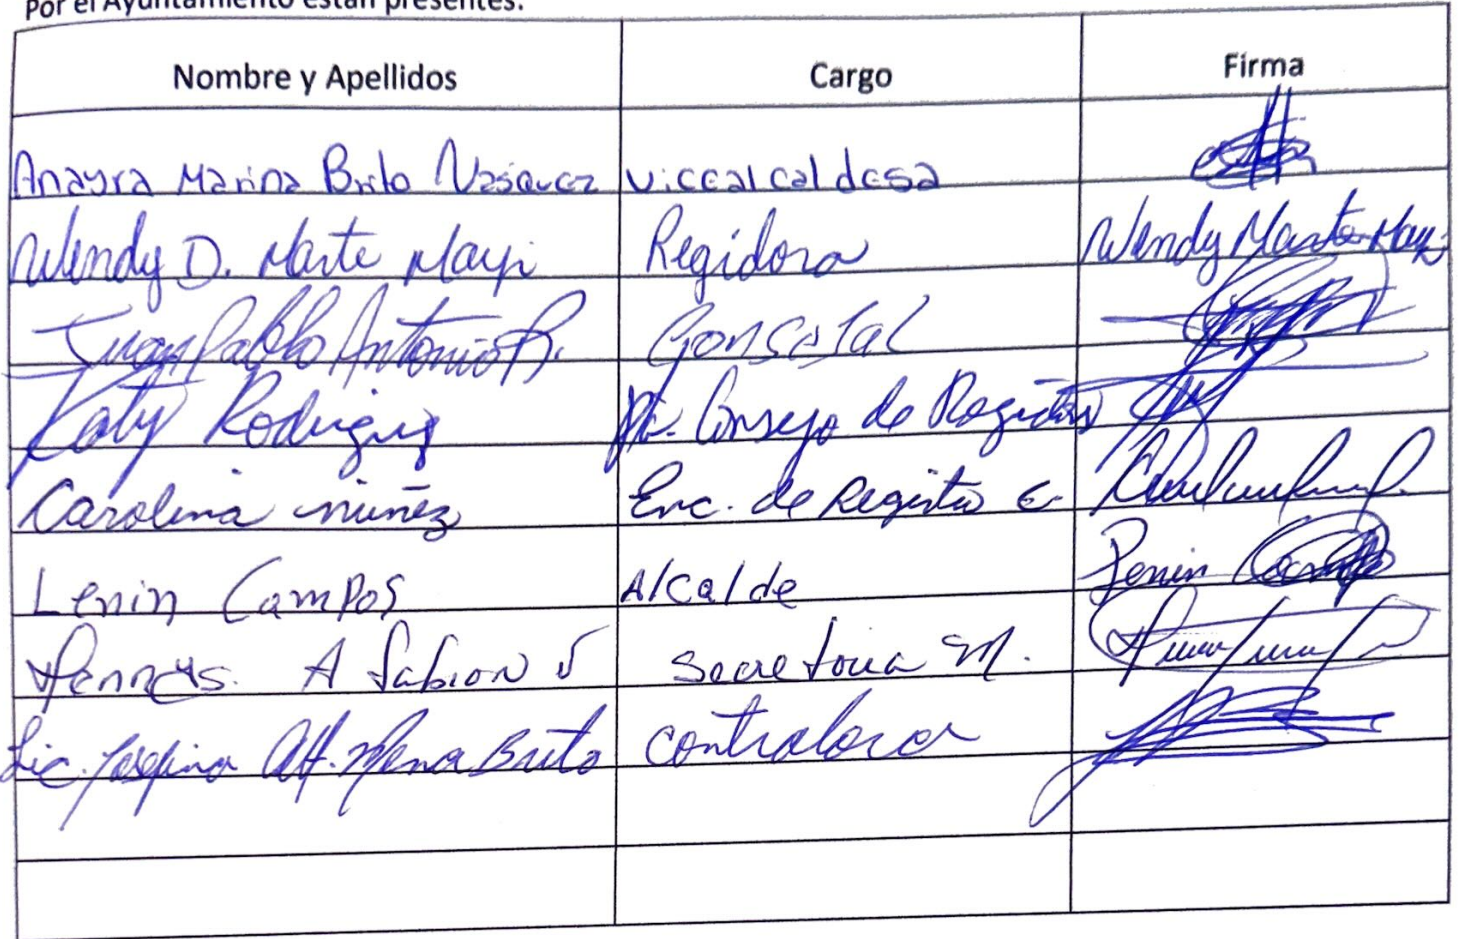 Por el Ayuntamiento están presentes:
Nombre y Apellidos Cargo Firma
Anayra Marina Brito Vasquez vicealcaldesa
Wendy D. Marte Mayi Regidora Wendy Marte Mayi
Juan Pablo Antonio R.
Katy Rodriguez Consejo de
Carolina núñez Enc. de Registro Lenin Campos Alcalde Lenin
A Secretaria M.
Lic. Mena Brito contralora